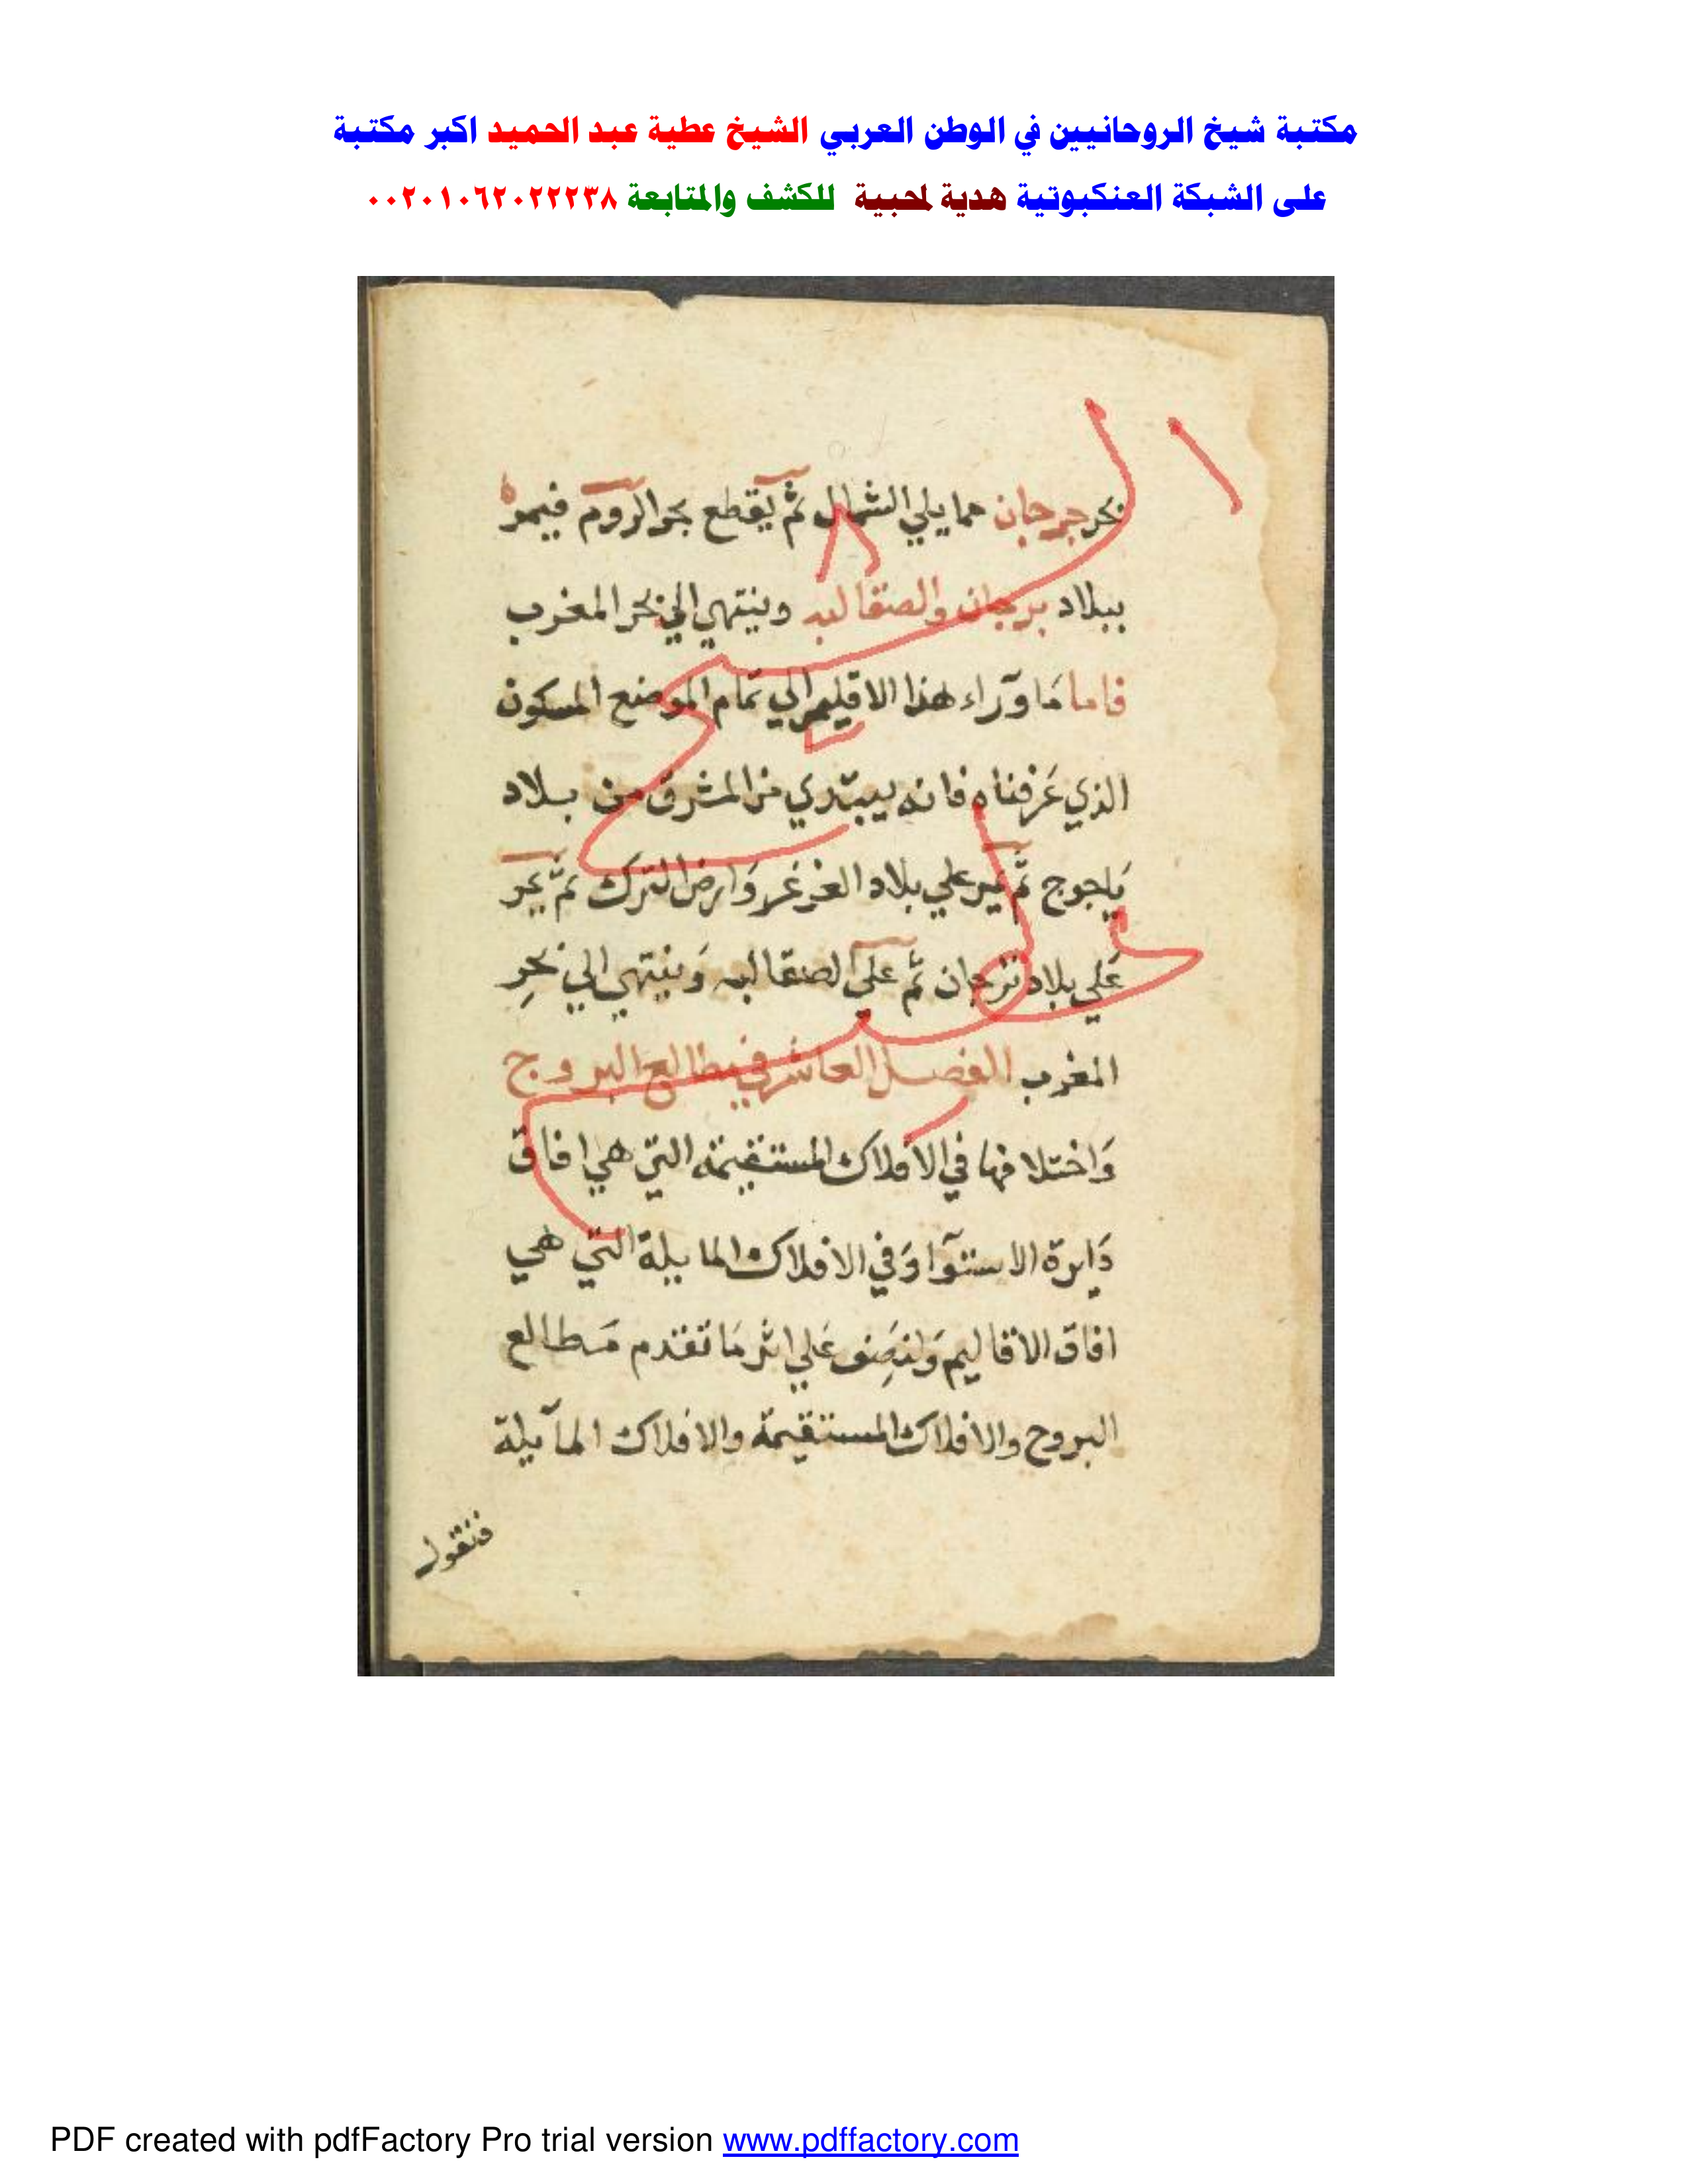 مكتبة شيخ الروحانيين في الوطن العربي الشيخ عطية عبد الحميد اكبر مكتبة
على الشبكة العنكبوتية هدية لمحبية للكشف والمتابعة ٠٠٢٠١٠٦٢٠٢٢٢٣٨
بحر جرجان مما يلي الشمال ثم يقطع بحر الروم فيمر
ببلاد برجان والصقالبه وينتهي الي بحر المغرب
فاما مَا وَراء هذا الاقليم الي تمام الموضع المسكون
الذي عَرفناه فانه يبتدي من المشرق من بلاد
يَاجوج ثم يمر علي بلاد الغزغز وَارض الترك ثم يمر
عَلي بلاد برجان ثم علي الصقالبه وَينتهي الي بحرِ
المغرب الفصل العاشر في مطالع البروج
وَاختلافها في الافلاك المستقيمه التي هي افاق
دَايرة الاستوآ وَفي الافلاك المايلة التي هي
افاق الاقاليم وَلنصِف عَلي اثر مَا تقدم مَطالع
البروج والافلاك المستقيمة والافلاك المآيلة
فنقول
PDF created with pdfFactory Pro trial version www.pdffactory.com